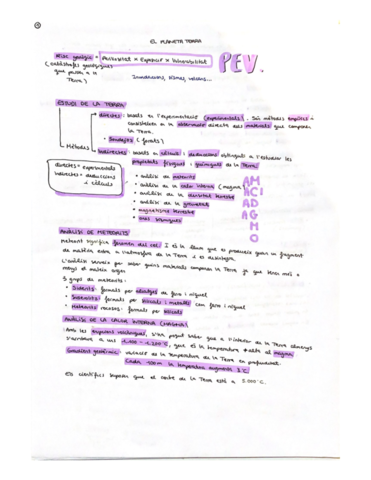 EL PLANETA TERRA
Risc geològic = Perillositat x Exposició x Vulnerabilitat
(catàstrofes geològiques
que passen a la
Terra)
Inundacions, sismes, volcans...
PEV
ESTUDI DE LA TERRA
directes: basats en l'experimentació (experimentals). Són mètodes empírics i
consisteixen en la observació directa dels materials que componen
la Terra.
• Sondejos (forats)
Mètodes
indirectes: basats en càlculs i deduccions obtinguts a l'estudiar les
propietats físiques i químiques de la Terra:
directes = experimentals
indirectes = deduccions
i càlculs
• anàlisi de meteorits
• anàlisi de la calor interna (magma)
• anàlisi de la densitat terrestre
• anàlisi de la gravetat
• magnetisme terrestre
• ones sísmiques
AM
ACI
AD
AG
M
O
ANÀLISI DE METEORITS
Meteorit significa fenomen del cel. I és la llum que es produeix quan un fragment
de matèria entra a l'atmosfera de la Terra i es desintegra.
L'anàlisi serveix per saber quins materials componen la Terra ja que tenen el
mateix origen
3 grups de meteorits:
• Siderits: formats per aliatges de ferro i níquel
• Siderolits: formats per silicats i metalls com ferro i níquel
• Meteorits rocosos: formats per silicats
ANÀLISI DE LA CALOR INTERNA (MAGMA)
Amb les erupcions volcàniques, s'ha pogut saber que a l'interior de la Terra almenys
s'arribava a uns 1.100 - 1.200°C, que és la temperatura del magma.
Gradient geotèrmic: variació de la temperatura de la Terra en profunditat.
Cada 100 m la temperatura augmenta 3°C
Els científics suposen que el centre de la Terra està a 5.000°C.